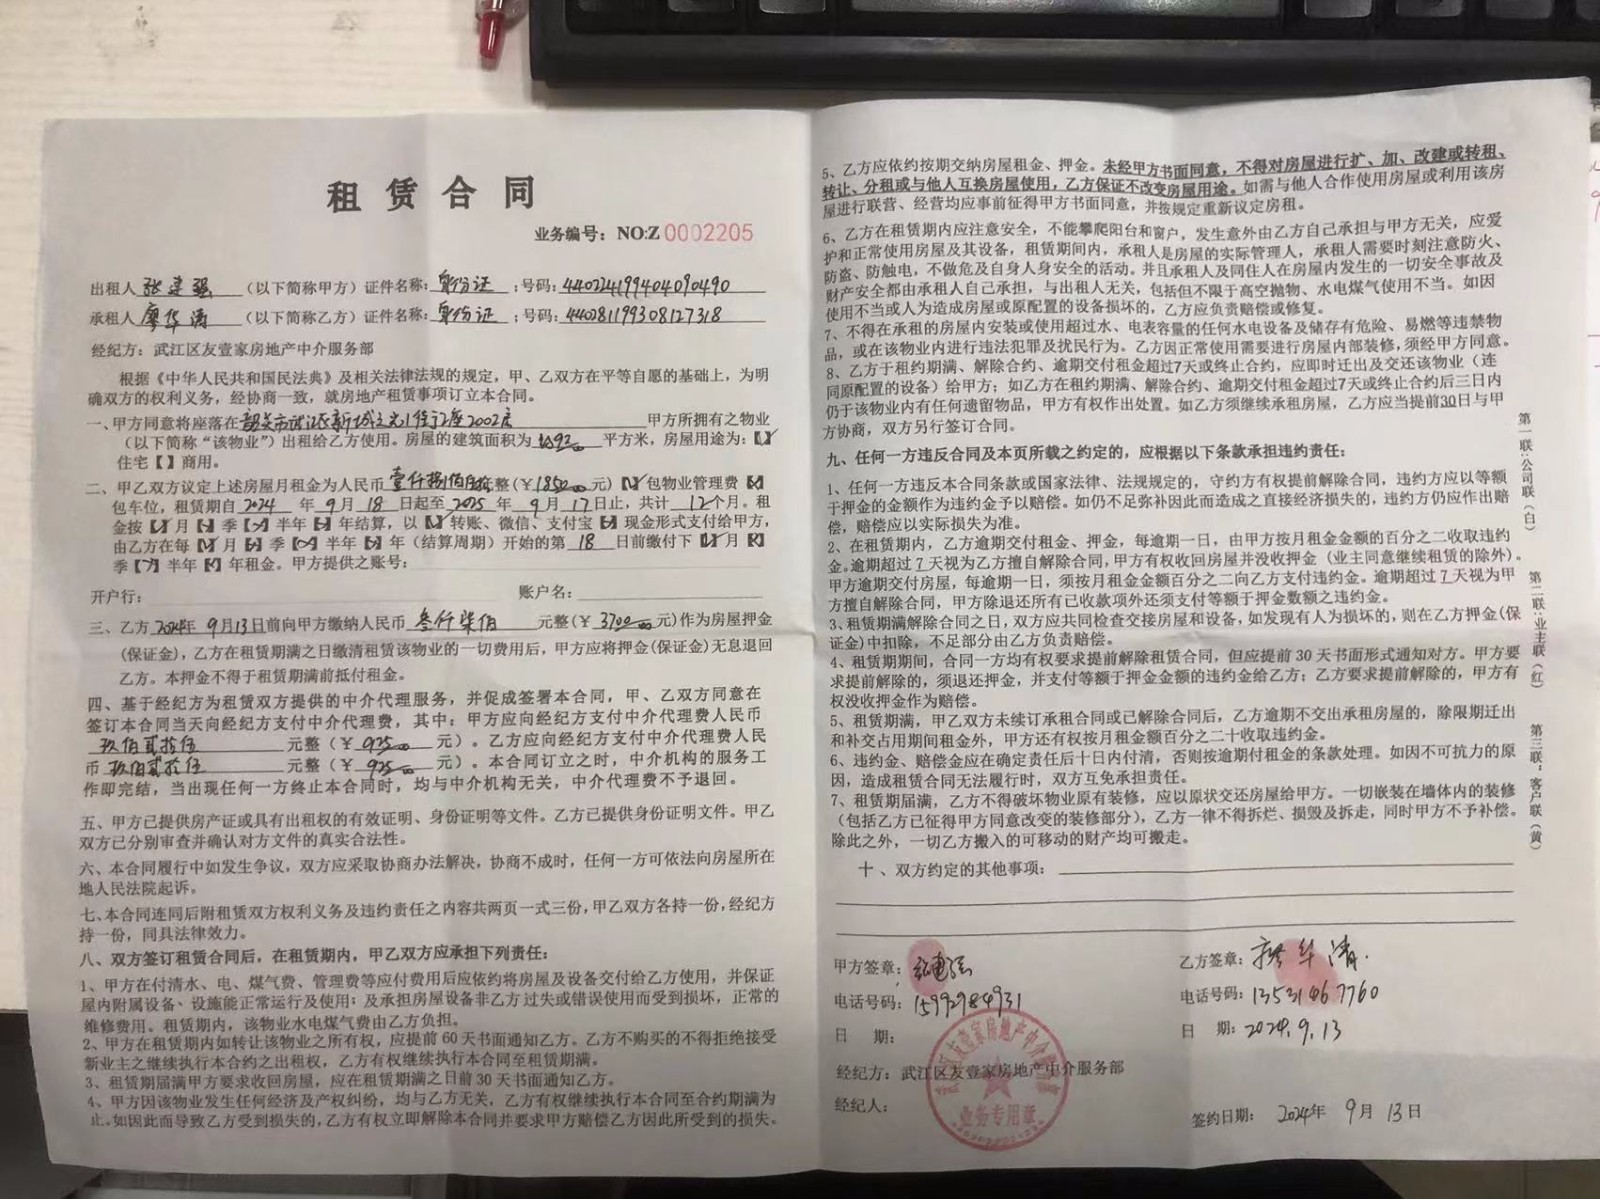 租赁合同
业务编号：NO:Z 0002205
出租人 张建强 （以下简称甲方）证件名称：身份证 ；号码：440224199404090490
承租人 廖华清 （以下简称乙方）证件名称：身份证 ；号码：440281199308127318
经纪方：武江区友壹家房地产中介服务部
根据《中华人民共和国民法典》及相关法律法规的规定，甲、乙双方在平等自愿的基础上，为明
确双方的权利义务，经协商一致，就房地产租赁事项订立本合同。
一、甲方同意将座落在 韶关市武江区新城 2002房 甲方所拥有之物业
（以下简称“该物业”）出租给乙方使用。房屋的建筑面积为 平方米，房屋用途为：【✓】
住宅【 】商用。
二、甲乙双方议定上述房屋月租金为人民币 壹仟捌佰伍拾 整（￥1850.00 元）【✓】包物业管理费【 】
包车位，租赁期自 2024 年 9 月 18 日起至 2025 年 9 月 17 日止，共计 12 个月。租
金按【✓】月【 】季【 】半年【 】年结算，以【✓】转账、微信、支付宝【 】现金形式支付给甲方，
由乙方在每【✓】月【 】季【 】半年【 】年（结算周期）开始的第 18 日前缴付下【✓】月【 】
季【 】半年【 】年租金。甲方提供之账号：
开户行： 账户名：
三、乙方 2024年 9月13日前向甲方缴纳人民币 叁仟柒佰 元整（￥ 3700.00 元）作为房屋押金
（保证金），乙方在租赁期满之日缴清租赁该物业的一切费用后，甲方应将押金（保证金）无息退回
乙方。本押金不得于租赁期满前抵付租金。
四、基于经纪方为租赁双方提供的中介代理服务，并促成签署本合同，甲、乙双方同意在
签订本合同当天向经纪方支付中介代理费，其中：甲方应向经纪方支付中介代理费人民币
玖佰贰拾伍 元整（￥ 925.00 元）。乙方应向经纪方支付中介代理费人民
币 玖佰贰拾伍 元整（￥ 925.00 元）。本合同订立之时，中介机构的服务工
作即完结，当出现任何一方终止本合同时，均与中介机构无关，中介代理费不予退回。
五、甲方已提供房产证或具有出租权的有效证明、身份证明等文件。乙方已提供身份证明文件。甲乙
双方已分别审查并确认对方文件的真实合法性。
六、本合同履行中如发生争议，双方应采取协商办法解决，协商不成时，任何一方可依法向房屋所在
地人民法院起诉。
七、本合同连同后附租赁双方权利义务及违约责任之内容共两页一式三份，甲乙双方各持一份，经纪方
持一份，同具法律效力。
八、双方签订租赁合同后，在租赁期内，甲乙双方应承担下列责任：
1、甲方在付清水、电、煤气费、管理费等应付费用后应依约将房屋及设备交付给乙方使用，并保证
屋内附属设备、设施能正常运行及使用；及承担房屋设备非乙方过失或错误使用而受到损坏，正常的
维修费用。租赁期内，该物业水电煤气费由乙方负担。
2、甲方在租赁期内如转让该物业之所有权，应提前60天书面通知乙方。乙方不购买的不得拒绝接受
新业主之继续执行本合约之出租权，乙方有权继续执行本合同至租赁期满。
3、租赁期届满甲方要求收回房屋，应在租赁期满之日前30天书面通知乙方。
4、甲方因该物业发生任何经济及产权纠纷，均与乙方无关，乙方有权继续执行本合同至合约期满为
止。如因此而导致乙方受到损失的，乙方有权立即解除本合同并要求甲方赔偿乙方因此所受到的损失。
5、乙方应依约按期交纳房屋租金、押金。未经甲方书面同意，不得对房屋进行扩、加、改建或转租、
转让、分租或与他人互换房屋使用，乙方保证不改变房屋用途。如需与他人合作使用房屋或利用该房
屋进行联营、经营均应事前征得甲方书面同意，并按规定重新议定房租。
6、乙方在租赁期内应注意安全，不能攀爬阳台和窗户，发生意外由乙方自己承担与甲方无关，应爱
护和正常使用房屋及其设备，租赁期间内，承租人是房屋的实际管理人，承租人需要时刻注意防火、
防盗、防触电，不做危及自身人身安全的活动。并且承租人及同住人在房屋内发生的一切安全事故及
财产安全都由承租人自己承担，与出租人无关，包括但不限于高空抛物、水电煤气使用不当。如因
使用不当或人为造成房屋或原配置的设备损坏的，乙方应负责赔偿或修复。
7、不得在承租的房屋内安装或使用超过水、电表容量的任何水电设备及储存有危险、易燃等违禁物
品，或在该物业内进行违法犯罪及扰民行为。乙方因正常使用需要进行房屋内部装修，须经甲方同意。
8、乙方于租约期满、解除合约、逾期交付租金超过7天或终止合约，应即时迁出及交还该物业（连
同原配置的设备）给甲方；如乙方在租约期满、解除合约、逾期交付租金超过7天或终止合约后三日内
仍于该物业内有任何遗留物品，甲方有权作出处置。如乙方须继续承租房屋，乙方应当提前30日与甲
方协商，双方另行签订合同。
九、任何一方违反合同及本页所载之约定的，应根据以下条款承担违约责任：
1、任何一方违反本合同条款或国家法律、法规规定的，守约方有权提前解除合同，违约方应以等额
于押金的金额作为违约金予以赔偿。如仍不足弥补因此而造成之直接经济损失的，违约方仍应作出赔
偿，赔偿应以实际损失为准。
2、在租赁期内，乙方逾期交付租金、押金，每逾期一日，由甲方按月租金金额的百分之二收取违约
金。逾期超过7天视为乙方擅自解除合同，甲方有权收回房屋并没收押金（业主同意继续租赁的除外）。
甲方逾期交付房屋，每逾期一日，须按月租金金额百分之二向乙方支付违约金。逾期超过7天视为甲
方擅自解除合同，甲方除退还所有已收款项外还须支付等额于押金数额之违约金。
3、租赁期满解除合同之日，双方应共同检查交接房屋和设备，如发现有人为损坏的，则在乙方押金（保
证金）中扣除，不足部分由乙方负责赔偿。
4、租赁期期间，合同一方均有权要求提前解除租赁合同，但应提前30天书面形式通知对方。甲方要
求提前解除的，须退还押金，并支付等额于押金金额的违约金给乙方；乙方要求提前解除的，甲方有
权没收押金作为赔偿。
5、租赁期满，甲乙双方未续订承租合同或已解除合同后，乙方逾期不交出承租房屋的，除限期迁出
和补交占用期间租金外，甲方还有权按月租金额百分之二十收取违约金。
6、违约金、赔偿金应在确定责任后十日内付清，否则按逾期付租金的条款处理。如因不可抗力的原
因，造成租赁合同无法履行时，双方互免承担责任。
7、租赁期届满，乙方不得破坏物业原有装修，应以原状交还房屋给甲方。一切嵌装在墙体内的装修
（包括乙方已征得甲方同意改变的装修部分），乙方一律不得拆烂、损毁及拆走，同时甲方不予补偿。
除此之外，一切乙方搬入的可移动的财产均可搬走。
十、双方约定的其他事项：
甲方签章：张建强
电话号码：15992984931
日 期：
乙方签章：廖华清
电话号码：13531467760
日 期：2024.9.13
经纪方：武江区友壹家房地产中介服务部
经纪人：
签约日期：2024年 9月 13日
武江区友壹家房地产中介服务部
业务专用章
第一联：公司联（白）
第二联：业主联（红）
第三联：客户联（黄）